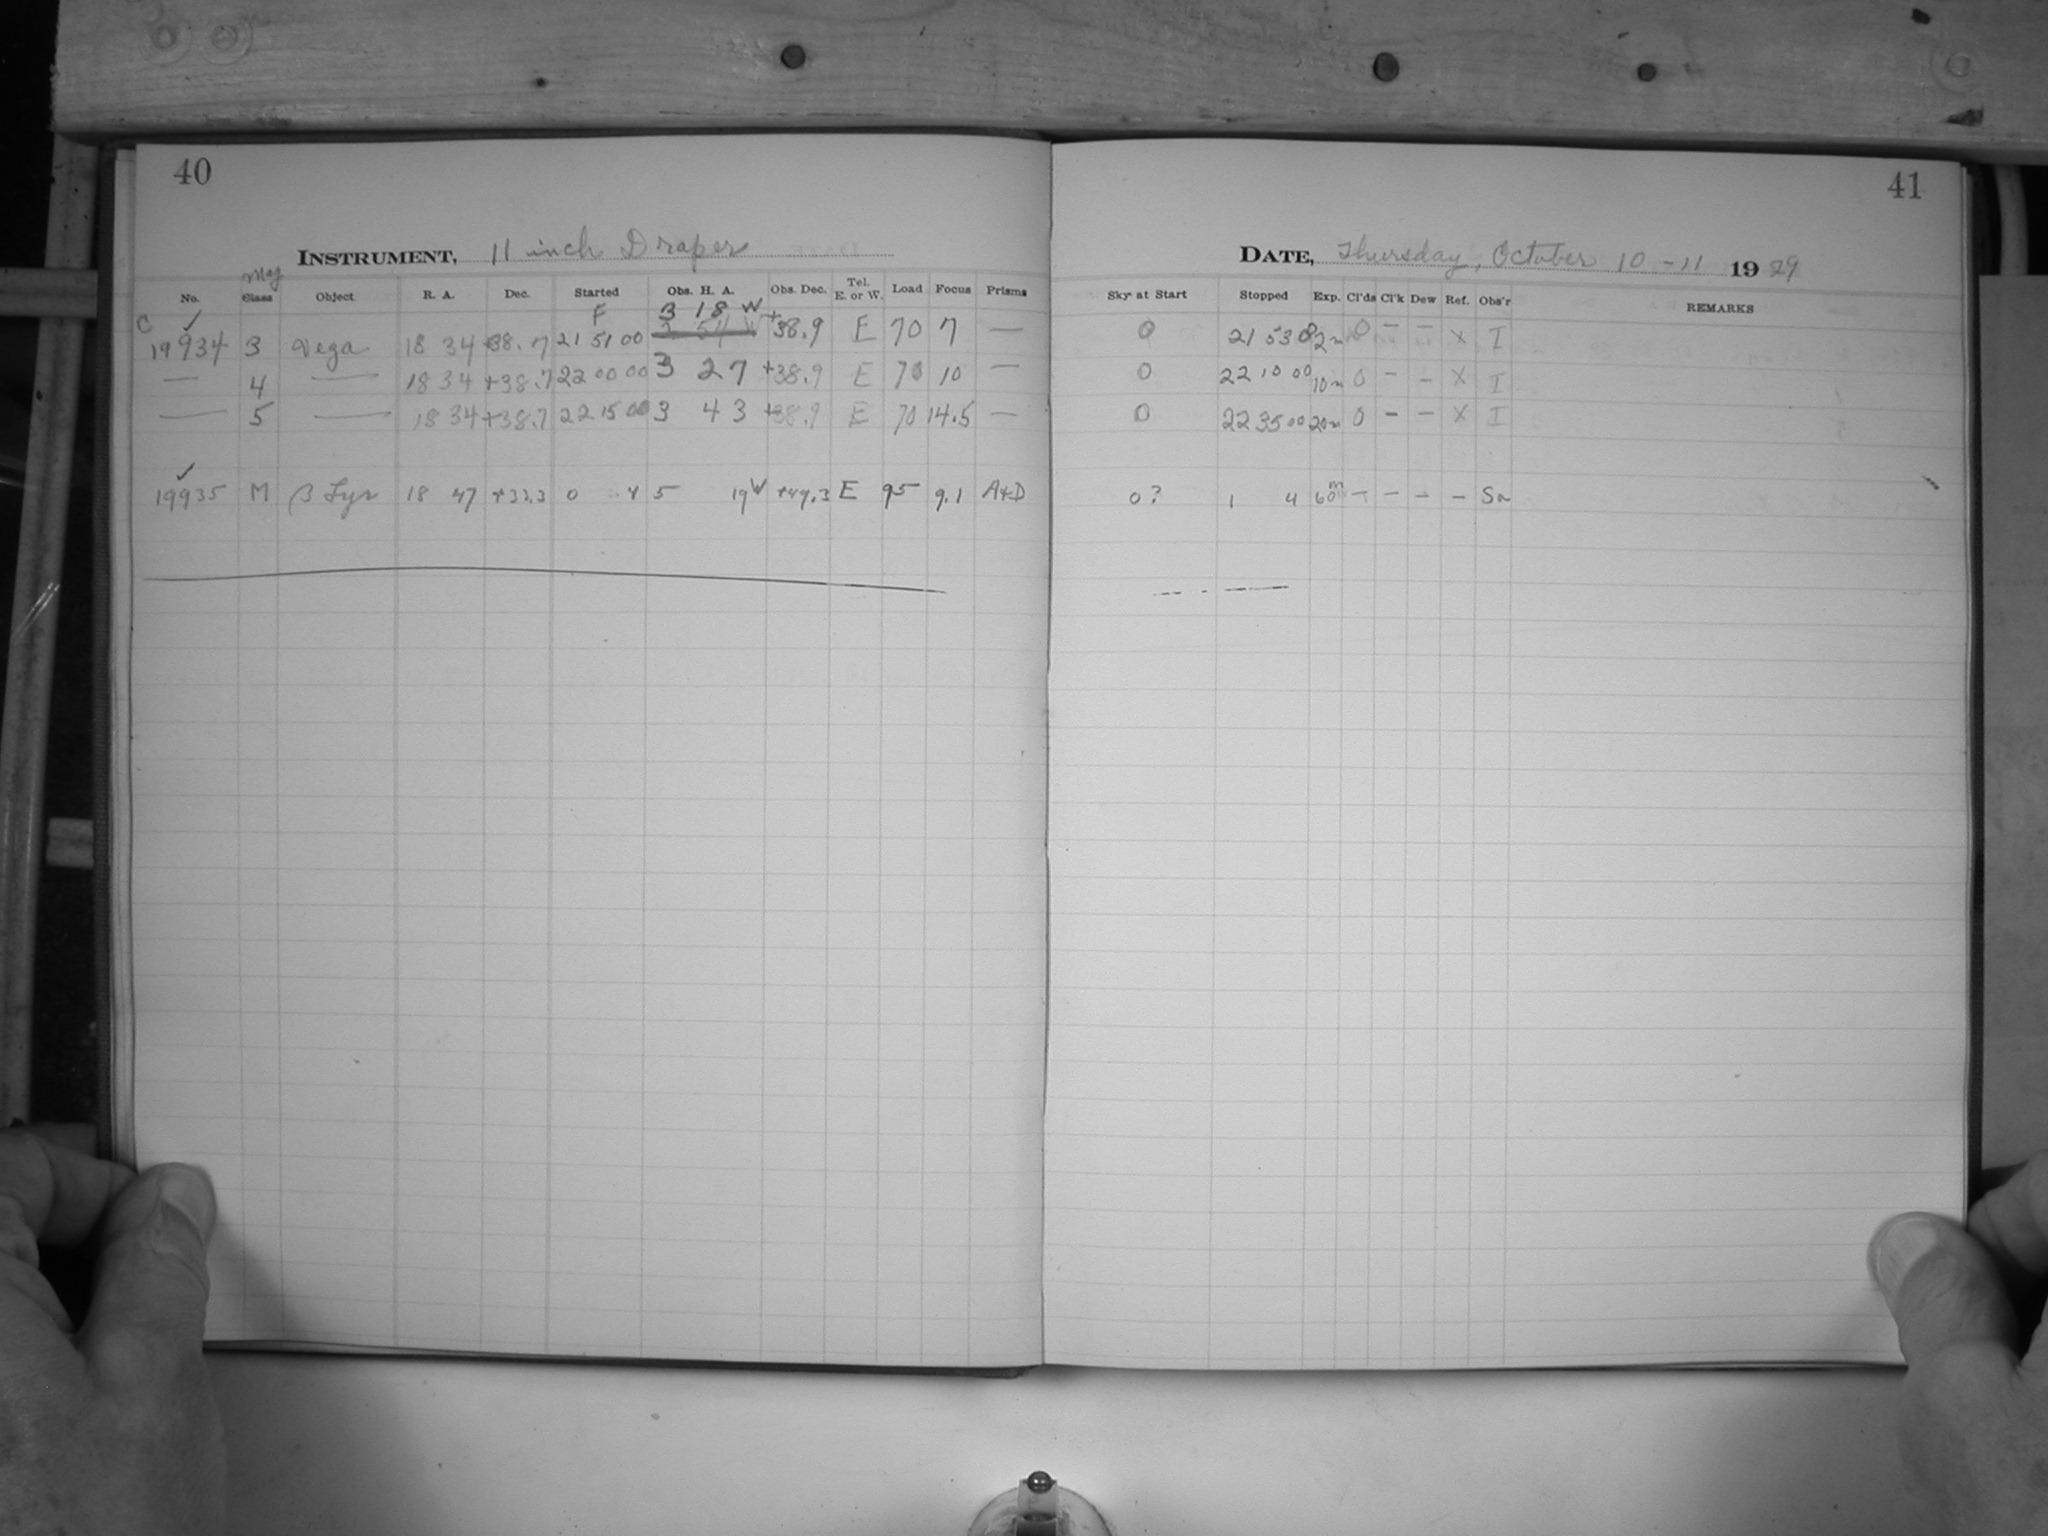 40
INSTRUMENT, 11 inch Draper
No. Mag Class Object R. A. Dec. Started Obs. H. A. Obs. Dec. Tel. E. or W. Load Focus Prisms
F 3 18 W
C ✓
19934 3 Vega 18 34 +38.7 21 51 00 2 54 W +38.9 E 70 7 —
— 4 — 18 34 +38.7 22 00 00 3 27 +38.9 E 70 10 —
— 5 — 18 34 +38.7 22 15 00 3 43 +38.9 E 70 14.5 —
✓
19935 M β Lyr 18 47 +33.3 0 4 5 19 W E 95 9.1 A+D
41
DATE, Thursday, October 10-11 1929
Sky at Start Stopped Exp. Cl'ds Cl'k Dew Ref. Obs'r REMARKS
0 21 53 0 2m 0 — — X I
0 22 10 00 10m 0 — — X I
0 22 35 00 20m 0 — — X I
0? 1 4 60m — — — — Sn